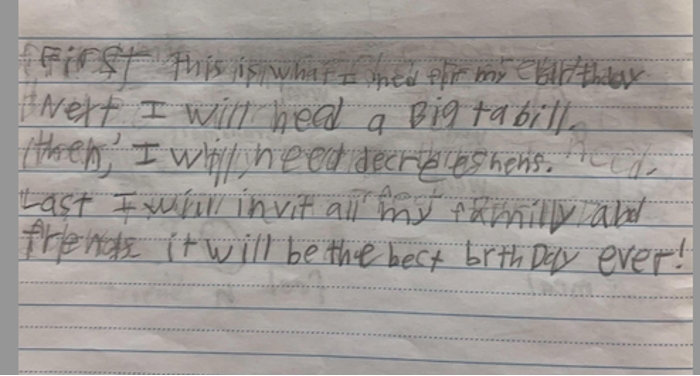 First This is what I ned for my birthday
Next I will need a Big tabill.
then, I will need decreeshens.
Last I will invit all my familly and
friends it will be the best brthDay ever!